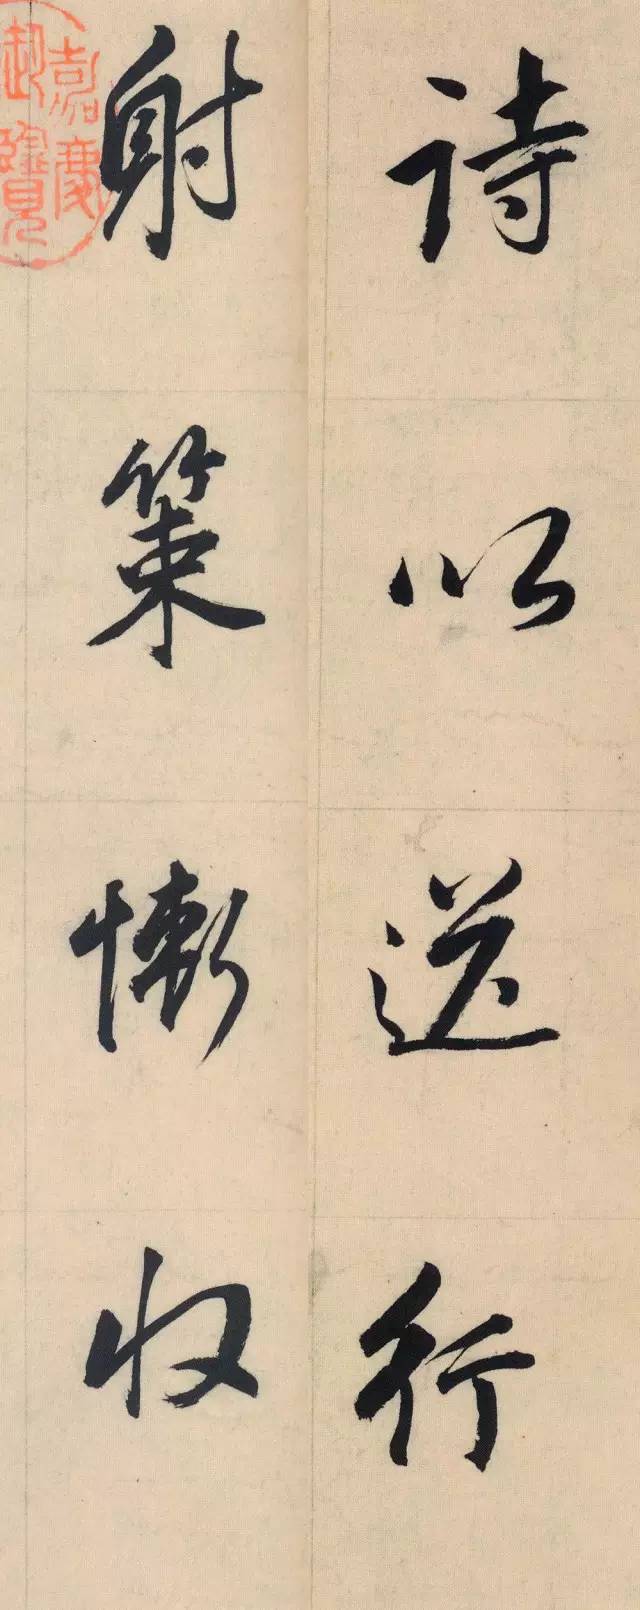 詩以送行
射策慚收
嘉慶
御覽